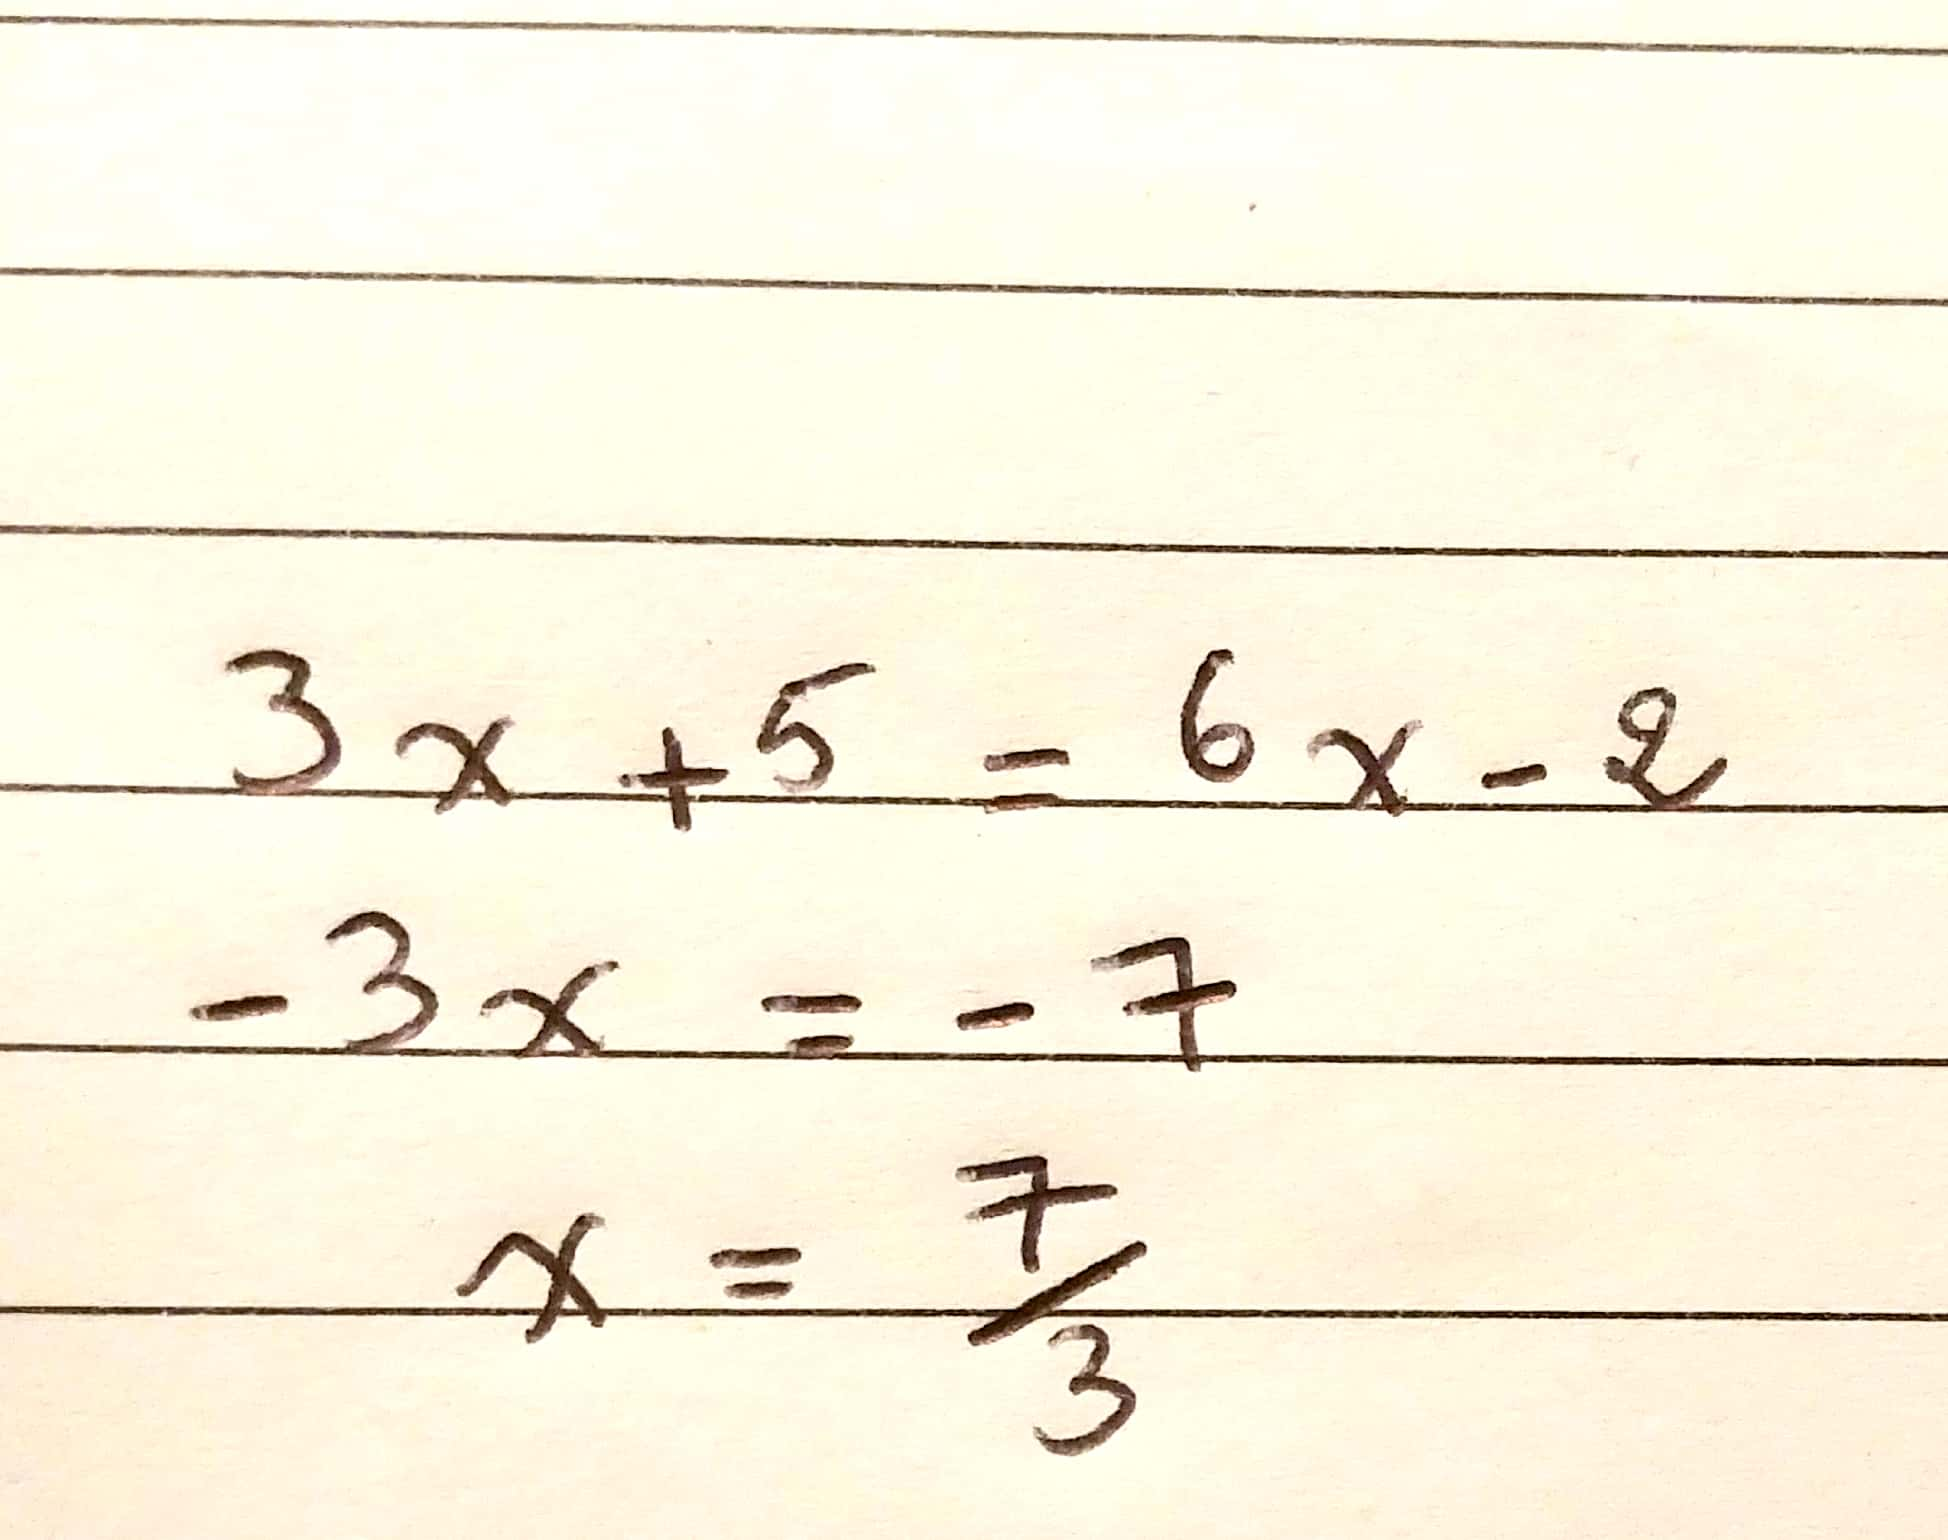 3x + 5 = 6x - 2
-3x = -7
x = 7/3